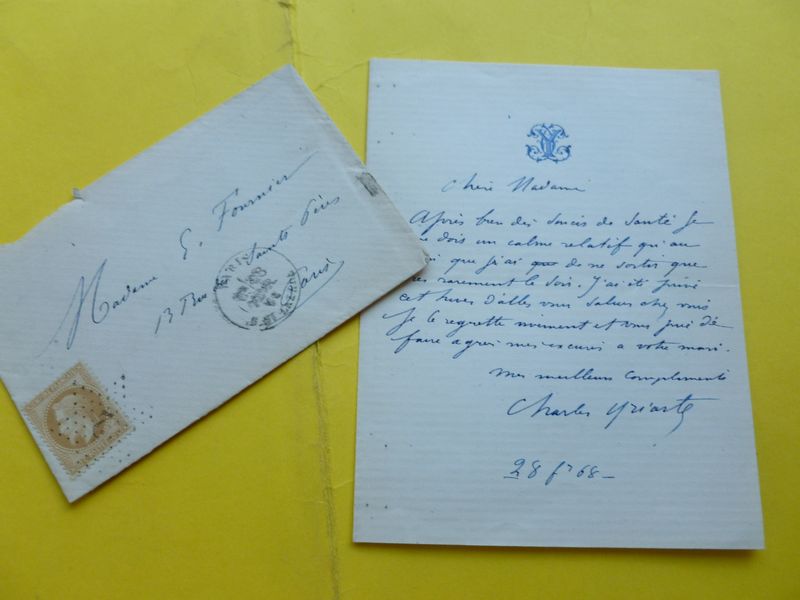 Madame E. Fournier
13 Rue Saints Pères
Paris
Chère Madame
Après bien des soucis de santé je
ne dois un calme relatif qu'au
que j'ai que de ne sortir que
très rarement le soir. J'ai été privé
cet hiver d'aller vous saluer chez vous
Je le regrette vivement et vous prie de
faire agréer mes excuses a votre mari.
Mes meilleurs compliments
Charles Yriarte
28 fr 68